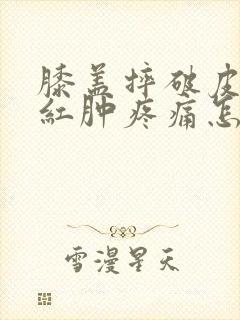 膝盖摔破皮
红肿疼痛怎
雪漫星天